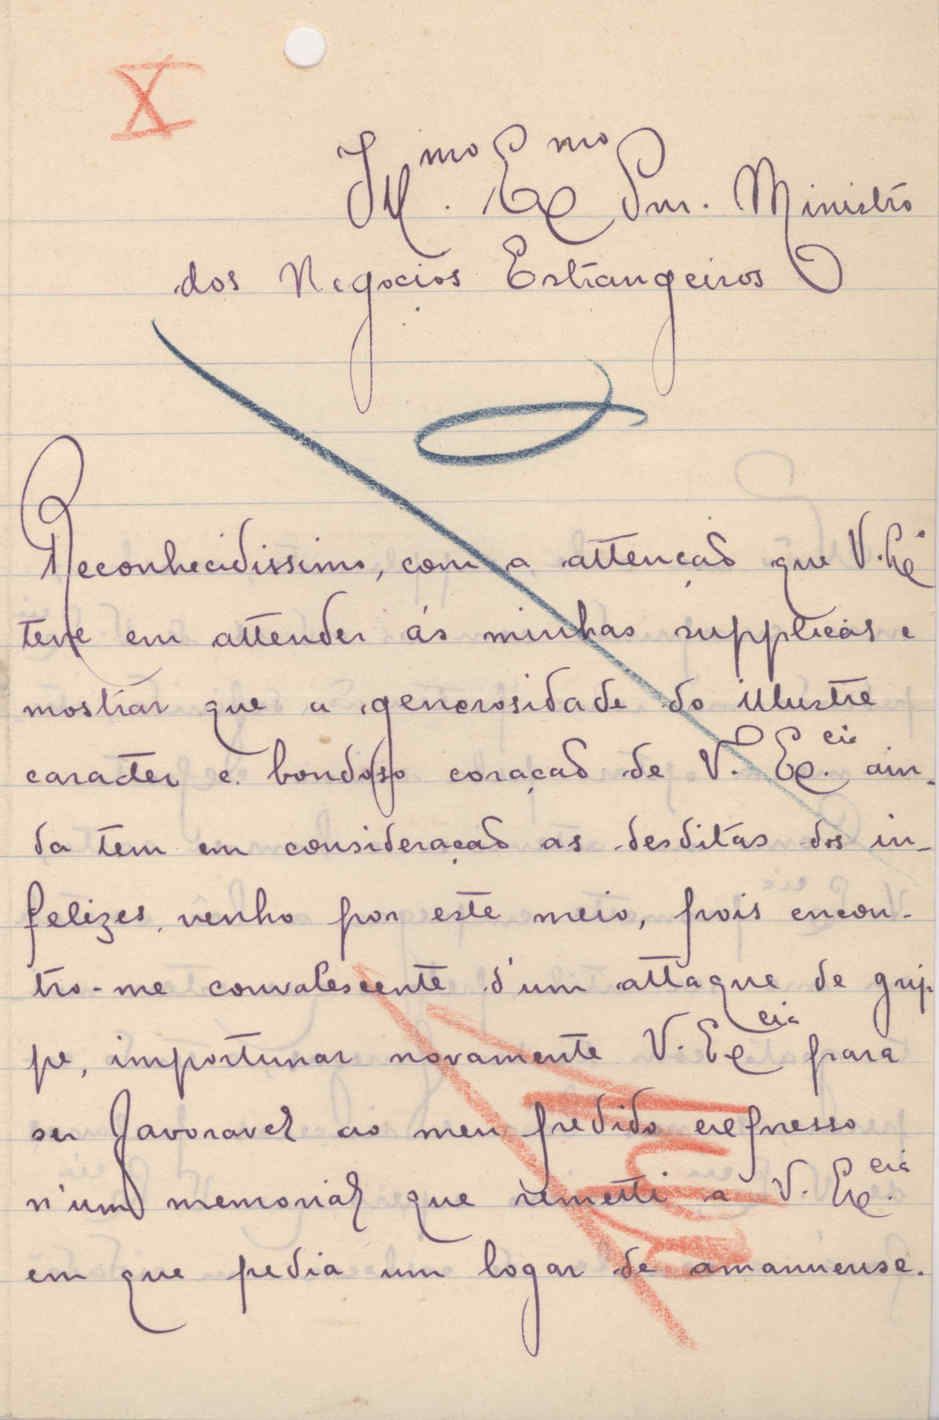 X
Ill.mo Ex.mo Snr. Ministro
dos Negocios Estrangeiros
Reconhecidissimo, com a attenção que V. Ex.a
teve em attender ás minhas supplicas e
mostrar que a generosidade do illustre
caracter e bondoso coração de V. Ex.cia ain-
da tem em consideração as desditas dos in-
felizes, venho por este meio, pois encon-
tro-me convalescente d'um attaque de grip
pe, importunar novamente V. Ex.cia para
ser favoravel ao meu pedido expresso
n'um memorial que remetti a V. Ex.cia
em que pedia um logar de amanuense.